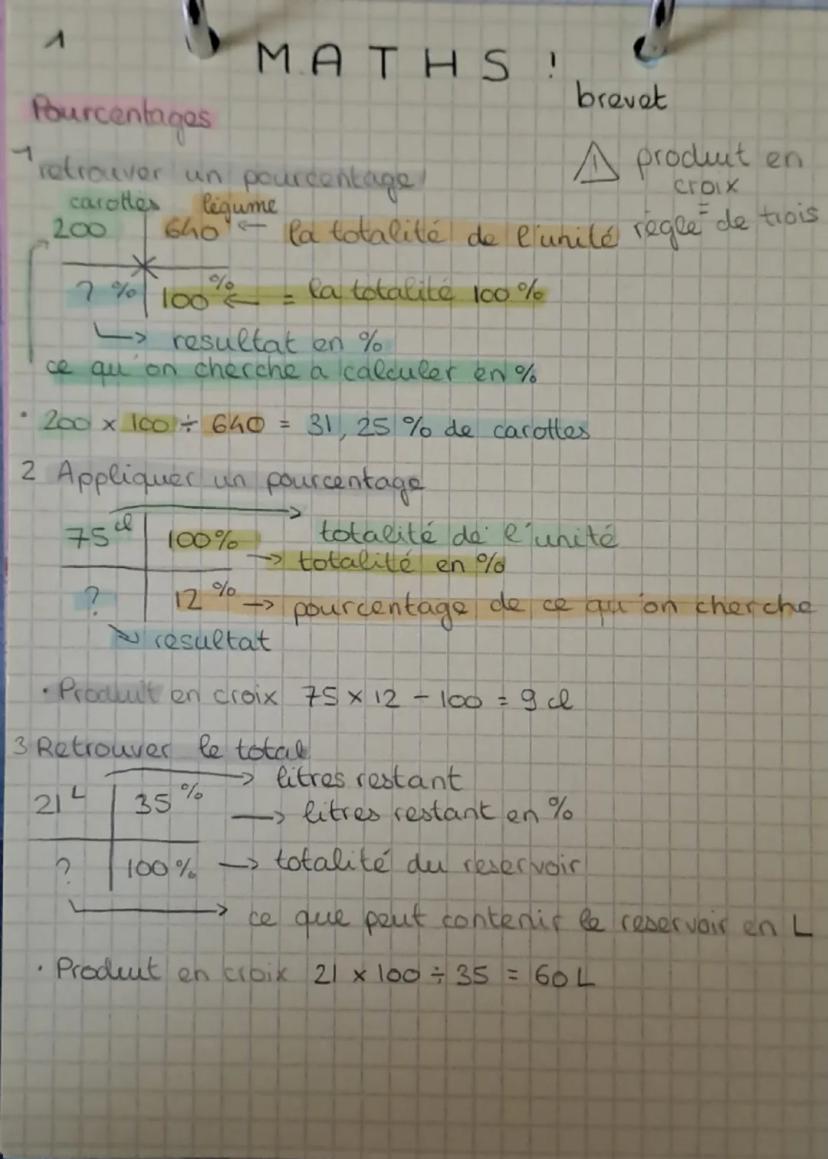 1
MATHS !
brevet
Pourcentages
⚠ produit en
croix
=
règle de trois
1 retrouver un pourcentage
carottes légume
200 640 ← la totalité de l'unité
? % 100 % ← = la totalité 100 %
↳ resultat en %
ce qu'on cherche a calculer en %
• 200 x 100 ÷ 640 = 31,25 % de carottes
2 Appliquer un pourcentage
75 cl 100% → totalité de l'unité
→ totalité en %
? 12 % → pourcentage de ce qu'on cherche
↘ resultat
• Produit en croix 75 x 12 - 100 = 9 cl
3 Retrouver le total
21 L 35 % → litres restant
→ litres restant en %
? 100 % → totalité du reservoir
→ ce que peut contenir le reservoir en L
• Produit en croix 21 x 100 ÷ 35 = 60 L